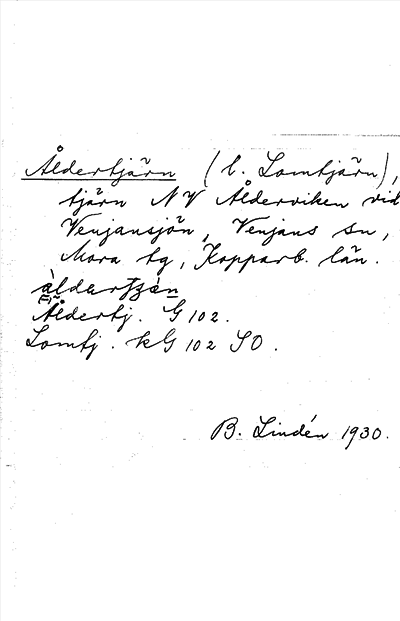 Åldertjärn (l. Lomtjärn),
tjärn NV Ålderviken vid
Venjansjön, Venjans sn,
Mora tg, Kopparb. län.
Åldertj. G 102.
Lomtj. kG 102 SO.
B. Lindén 1930.